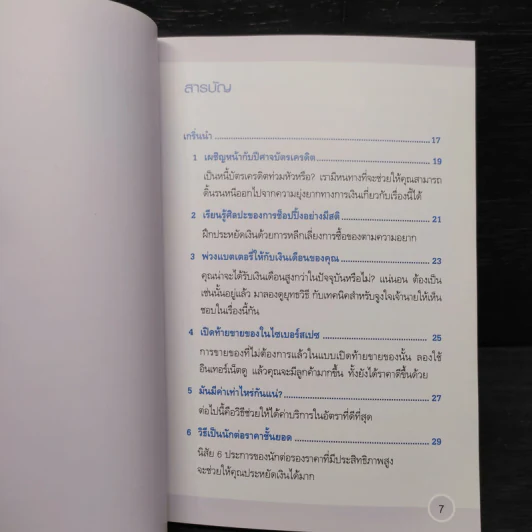 สารบัญ
เกริ่นนำ ........................................................ 17
1 เผชิญหน้ากับปีศาจบัตรเครดิต ........................................ 19
เป็นหนี้บัตรเครดิตท่วมหัวหรือ? เรามีหนทางที่จะช่วยให้คุณสามารถ
ดิ้นรนหนีออกไปจากความยุ่งยากทางการเงินเกี่ยวกับเรื่องนี้ได้
2 เรียนรู้ศิลปะของการช็อปปิ้งอย่างมีสติ ........................................ 21
ฝึกประหยัดเงินด้วยการหลีกเลี่ยงการซื้อของตามความอยาก
3 พ่วงแบตเตอรี่ให้กับเงินเดือนของคุณ ........................................ 23
คุณน่าจะได้รับเงินเดือนสูงกว่าในปัจจุบันหรือไม่? แน่นอน ต้องเป็น
เช่นนั้นอยู่แล้ว มาลองดูยุทธวิธี กับเทคนิคสำหรับจูงใจเจ้านายให้เห็น
ชอบในเรื่องนี้กัน
4 เปิดท้ายขายของในไซเบอร์สเปซ ........................................ 25
การขายของที่ไม่ต้องการแล้วในแบบเปิดท้ายขายของนั้น ลองใช้
อินเทอร์เน็ตดู แล้วคุณจะมีลูกค้ามากขึ้น ทั้งยังได้ราคาดีขึ้นด้วย
5 มันมีค่าเท่าไหร่กันแน่? ........................................ 27
ต่อไปนี้คือวิธีช่วยให้ได้ค่าบริการในอัตราที่ดีที่สุด
6 วิธีเป็นนักต่อราคาชั้นยอด ........................................ 29
นิสัย 6 ประการของนักต่อรองราคาที่มีประสิทธิภาพสูง
จะช่วยให้คุณประหยัดเงินได้มาก
7